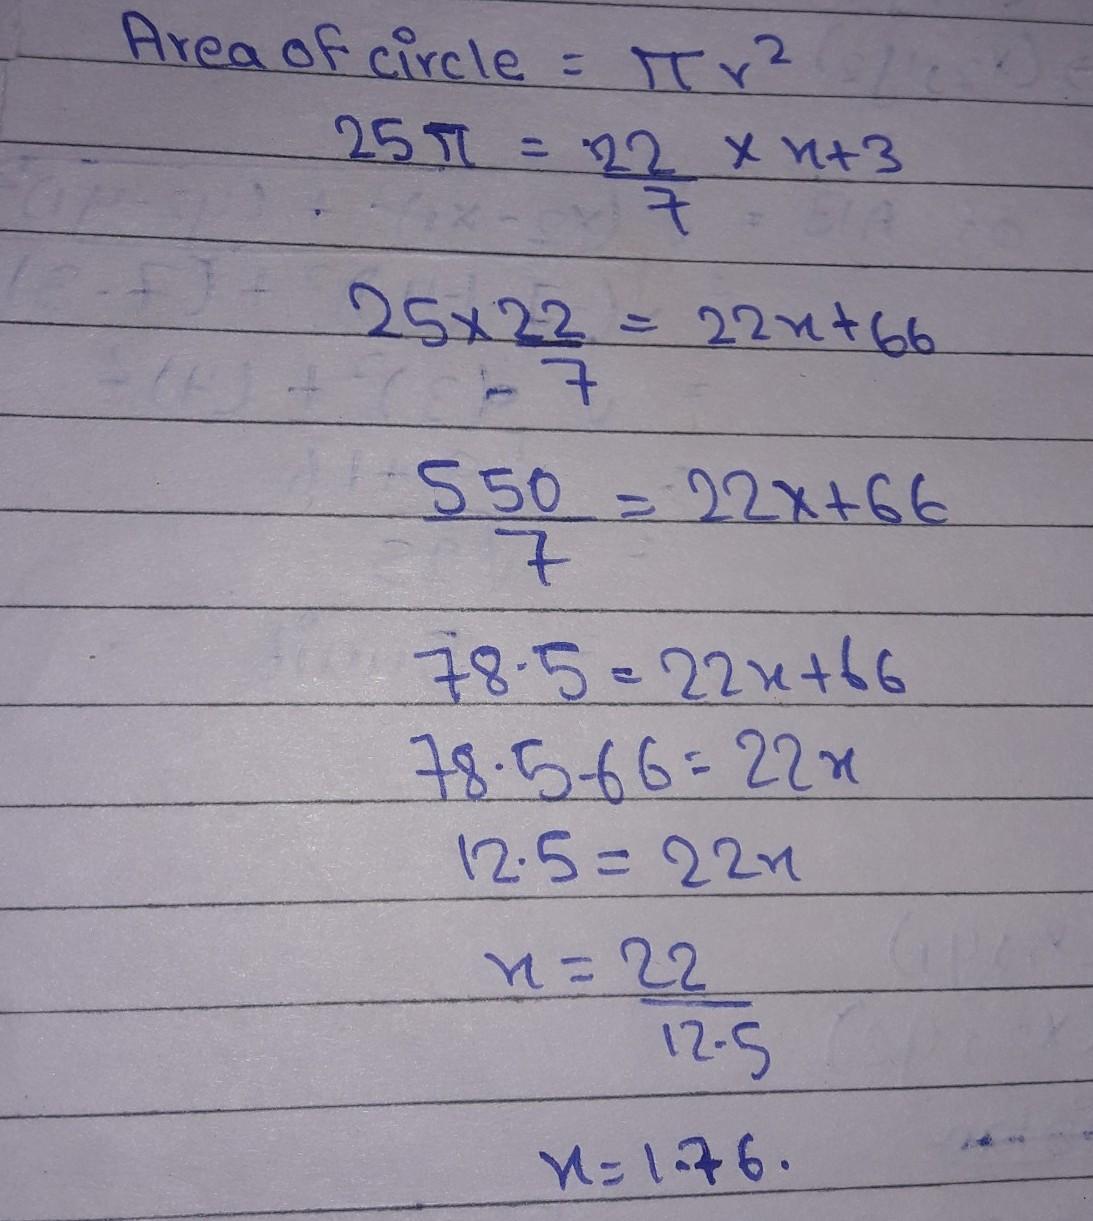 Area of circle = πr²
25π = 22/7 × x+3
25×22/7 = 22x+66
550/7 = 22x+66
78.5 = 22x+66
78.5-66 = 22x
12.5 = 22x
x = 22/12.5
x = 1.76.